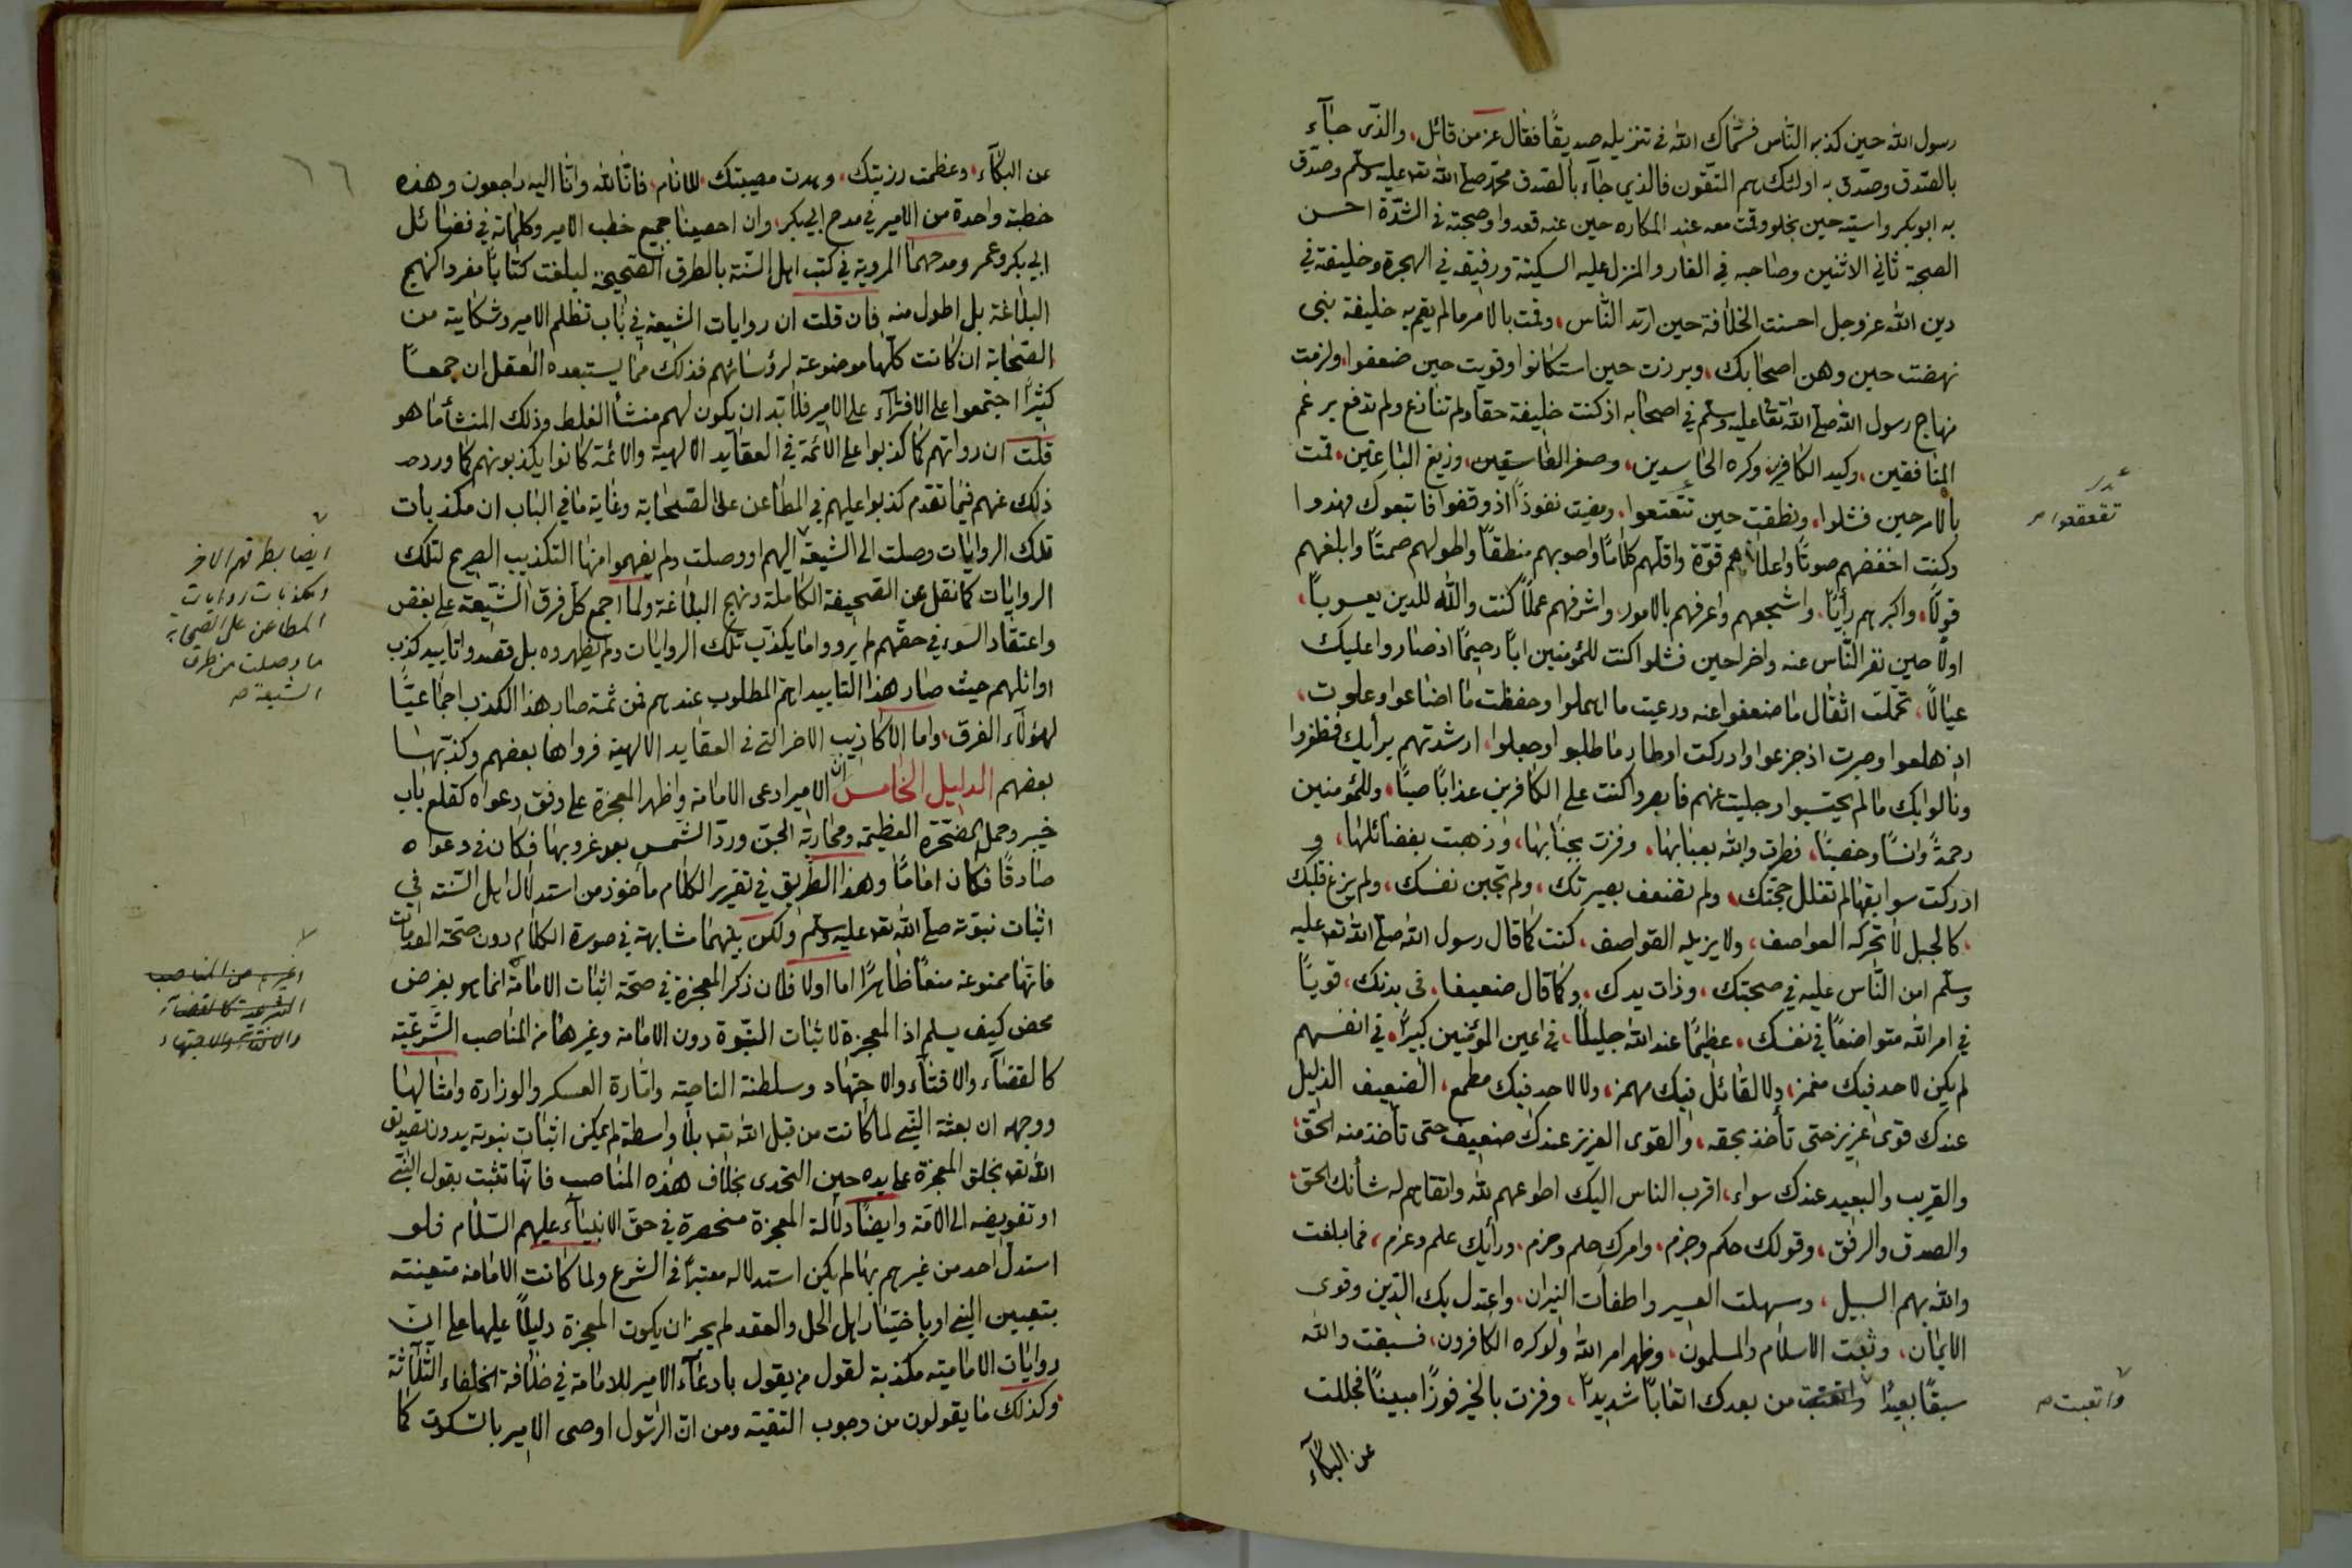 رسول الله حين كذبه الناس فسمّاك الله في تنزيله صديقًا فقال عز من قائل، والذي جاء
بالصدق وصدّق به اولئك هم المتقون فالذي جاء بالصدق محمد صلى الله تعـ عليه وسلم وصدّق
به ابو بكر واسيته حين بخلو وقمت معه عند المكاره حين عنه قعدوا وصحبته في الشدّة احسن
الصحبة ثاني الاثنين وصاحبه في الغار والمنزل عليه السكينة ورفيقه في الهجرة وخليفته في
دين الله عز وجل احسنت الخلافة حين ارتد الناس، وقمت بالامر ما لم يقم به خليفة نبي
نهضت حين وهن اصحابك، وبرزت حين استكانوا وقويت حين ضعفوا، ولزمت
منهاج رسول الله صلى الله تعا عليه وسلم في اصحابه اذ كنت خليفة حقا ولم تنازع ولم تدفع برغم
المنافقين، وكيد الكافرين وكره الحاسدين، وصغر الفاسقين، وزيغ الباغين، قمت
بالامر حين فشلوا، ونطقت حين تتعتعوا، ومضيت نفوذًا اذ وقفوا فاتبعوك فهدوا
تقعقعوا
وكنت اخفضهم صوتًا واعلاهم قوّة واقلّهم كلامًا واصوبهم منطقًا واطولهم صمتًا وابلغهم
قولًا، واكبرهم رأيًا، واشجعهم واعرفهم بالامور، واشرفهم عملًا كنت والله للدين يعسوبًا،
اولًا حين نفر الناس عنه واخرا حين فشلوا كنت للمؤمنين ابًا رحيمًا اذ صاروا عليك
عيالًا، تحملت اثقال ما ضعفوا عنه ورعيت ما اهملوا وحفظت ما اضاعوا وعلوت،
اذ هلعوا وصبرت اذ جزعوا وادركت اوطار ما طلبوا وجعلوا، ارشدتهم برأيك فظفروا
ونالوا بك ما لم يحتسبوا وجليت عنهم فابصروا كنت على الكافرين عذابًا صبًّا، وللمؤمنين
رحمةً وانسًا وخصبًا، فطرت والله بعبابها، وفزت بجبابها، وذهبت بفضائلها، و
ادركت سوابقها لم تفلل حجّتك، ولم تضعف بصيرتك، ولم تجبن نفسك، ولم يزغ قلبك
كالجبل لا تحركه العواصف، ولا يزيله القواصف، كنت كما قال رسول الله صلى الله تعـ عليه
وسلّم امن الناس عليه في صحبتك، وذات يدك، وكما قال ضعيفا، في بدنك، قويًّا
في امر الله متواضعًا في نفسك، عظيمًا عند الله جليلًا، في اعين المؤمنين كبيرًا، في انفسهم
لم يكن لاحد فيك مغمز، ولا لقائل فيك مهمز، ولا لاحد فيك مطمع، الضعيف الذليل
عندك قوى عزيز حتى تأخذ بحقه، والقوى العزيز عندك ضعيف حتى تأخذ منه الحق،
والقريب والبعيد عندك سواء، اقرب الناس اليك اطوعهم لله واتقاهم له شأنك الحق،
والصدق والرفق، وقولك حكم وجزم، وامرك حلم وحزم، ورأيك علم وعزم، فما بلغت
والله بهم السبيل، وسهلت العسير واطفأت النيران، واعتدل بك الدين وقوى
الايمان، وثبت الاسلام والمسلمون، وظهر امر الله ولو كره الكافرون، فسبقت والله
سبقًا بعيدًا من بعدك اتعابًا شديدًا، وفزت بالخير فوزًا مبينًا فجللت
واتعبت
عن البكاء
٦٦
عن البكاء، وعظمت رزيتك، وهدت مصيبتك الانام، فانّا لله وانّا اليه راجعون وهذه
خطبة واحدة من الامير في مدح ابي بكر، وان احصينا جميع خطب الامير وكلماته في فضائل
ابي بكر وعمر ومدحهما المروية في كتب اهل السّنة بالطرق الصحيحة لبلغت كتابًا مفردا كنهج
البلاغة بل اطول منه فان قلت ان روايات الشيعة في باب تظلم الامير وشكايته من
الصّحابة ان كانت كلّها موضوعة لرؤسائهم فذلك ممّا يستبعده العقل ان جمعًا
كثيرًا اجتمعوا على الافتراء على الامير فلا بّد ان يكون لهم منشأ الغلط وذلك المنشأ ما هو
قلت ان رواتهم كما كذبوا على الائمة في العقايد الالهية والائمة كانوا يكذبونهم كما ورد
ذلك عنهم فيما تقدم كذبوا عليهم في المطاعن على الصحابة وغاية ما في الباب ان مكذبات
تلك الروايات وصلت الى الشيعة اليهم او وصلت ولم يفهموا منها التكذيب الصريح لتلك
ايضا بطرقهم الاخر
ومكذبات روايات
المطاعن على الصحابة
ما وصلت من طرق
الشيعة صـ
الروايات كما نقل عن الصحيفة الكاملة ونهج البلاغة ولما اجمع كل فرق الشيعة على بغض
واعتقاد السوء في حقّهم لم يرووا ما يكذّب تلك الروايات ولم يظهروه بل قصدوا تأييد كذب
اوائلهم حيث صار هذا التأييد اهم المطلوب عندهم فمن ثمة صار هذا الكذب اجماعيًّا
لهؤلاء الفرق، واما الاكاذيب الاخر التي في العقايد الالهية فرواها بعضهم وكذّبها
بعضهم الدليل الخامس ان الامير ادعى الامامة واظهر المعجزة على وفق دعواه كقلع باب
خيبر وحمل الصّخرة العظيمة ومحاربة الجن وردّ الشمس بعد غروبها فكان في دعواه
صادقًا فكان امامًا وهذا الطريق في تقرير الكلام مأخوذ من استدلال اهل السّنة في
اثبات نبوّته صلى الله تعـ عليه وسلم ولكن بينهما مشابهة في صورة الكلام دون صحّة المقدمات
فانّها ممنوعة منعًا ظاهرًا اما اولا فلان ذكر المعجزة في صحّة اثبات الامامة انما هو بفرض
محض كيف يسلم اذ المعجزة لاثبات النبّوة دون الامامة وغيرها من المناصب الشّرعيّة
كالقضاء والافتاء والاجتهاد وسلطنة الناحية وامارة العسكر والوزارة وامثالها
ووجهه ان بعثة النبي لما كانت من قبل الله تعـ بلا واسطة لم يمكن اثبات نبوته بدون تصديق
الله تعـ بخلق المعجزة على يده حين التحدى بخلاف هذه المناصب فانّها تثبت بقول النبي
او تفويضه الى الامّة وايضًا دلالة المعجزة منحصرة في حق الانبياء عليهم السّلام فلو
استدلّ احد من غيرهم بها لم يكن استدلاله معتبرًا في الشرع ولما كانت الامامة متعينته
بتعيين النبي او باختيار اهل الحل والعقد لم يجز ان يكون المعجزة دليلًا عليها على انّ
روايات الامامية مكذبة لقول من يقول بادعاء الامير للامامة في خلافة الخلفاء الثّلاثة
وكذلك ما يقولون من وجوب التقية ومن انّ الرسول اوصى الامير بالسكوت كما